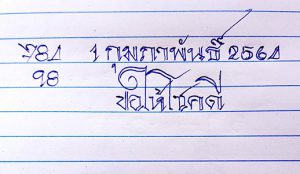 784 1 กุมภาพันธ์ 2564
98 ขอให้โชคดี